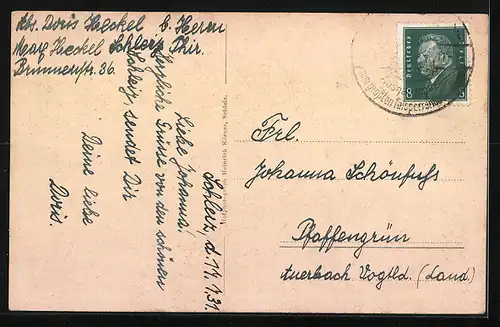 Abs. Doris Heckel b. Herrn
Marg Heckel Schleiz Thür.
Brunnenstr. 36.
Schleiz, d. 1.4.31.
Liebe Johanna!
Herzliche Grüße von den schönen
Schleiz, sendet Dir
Deine liebe
Doris.
Heinrich Körner, Schleiz.
Deutsches Reich
8 8
Frl.
Johanna Schönfuß
Pfaffengrün
Auerbach Vogtld. (Land)